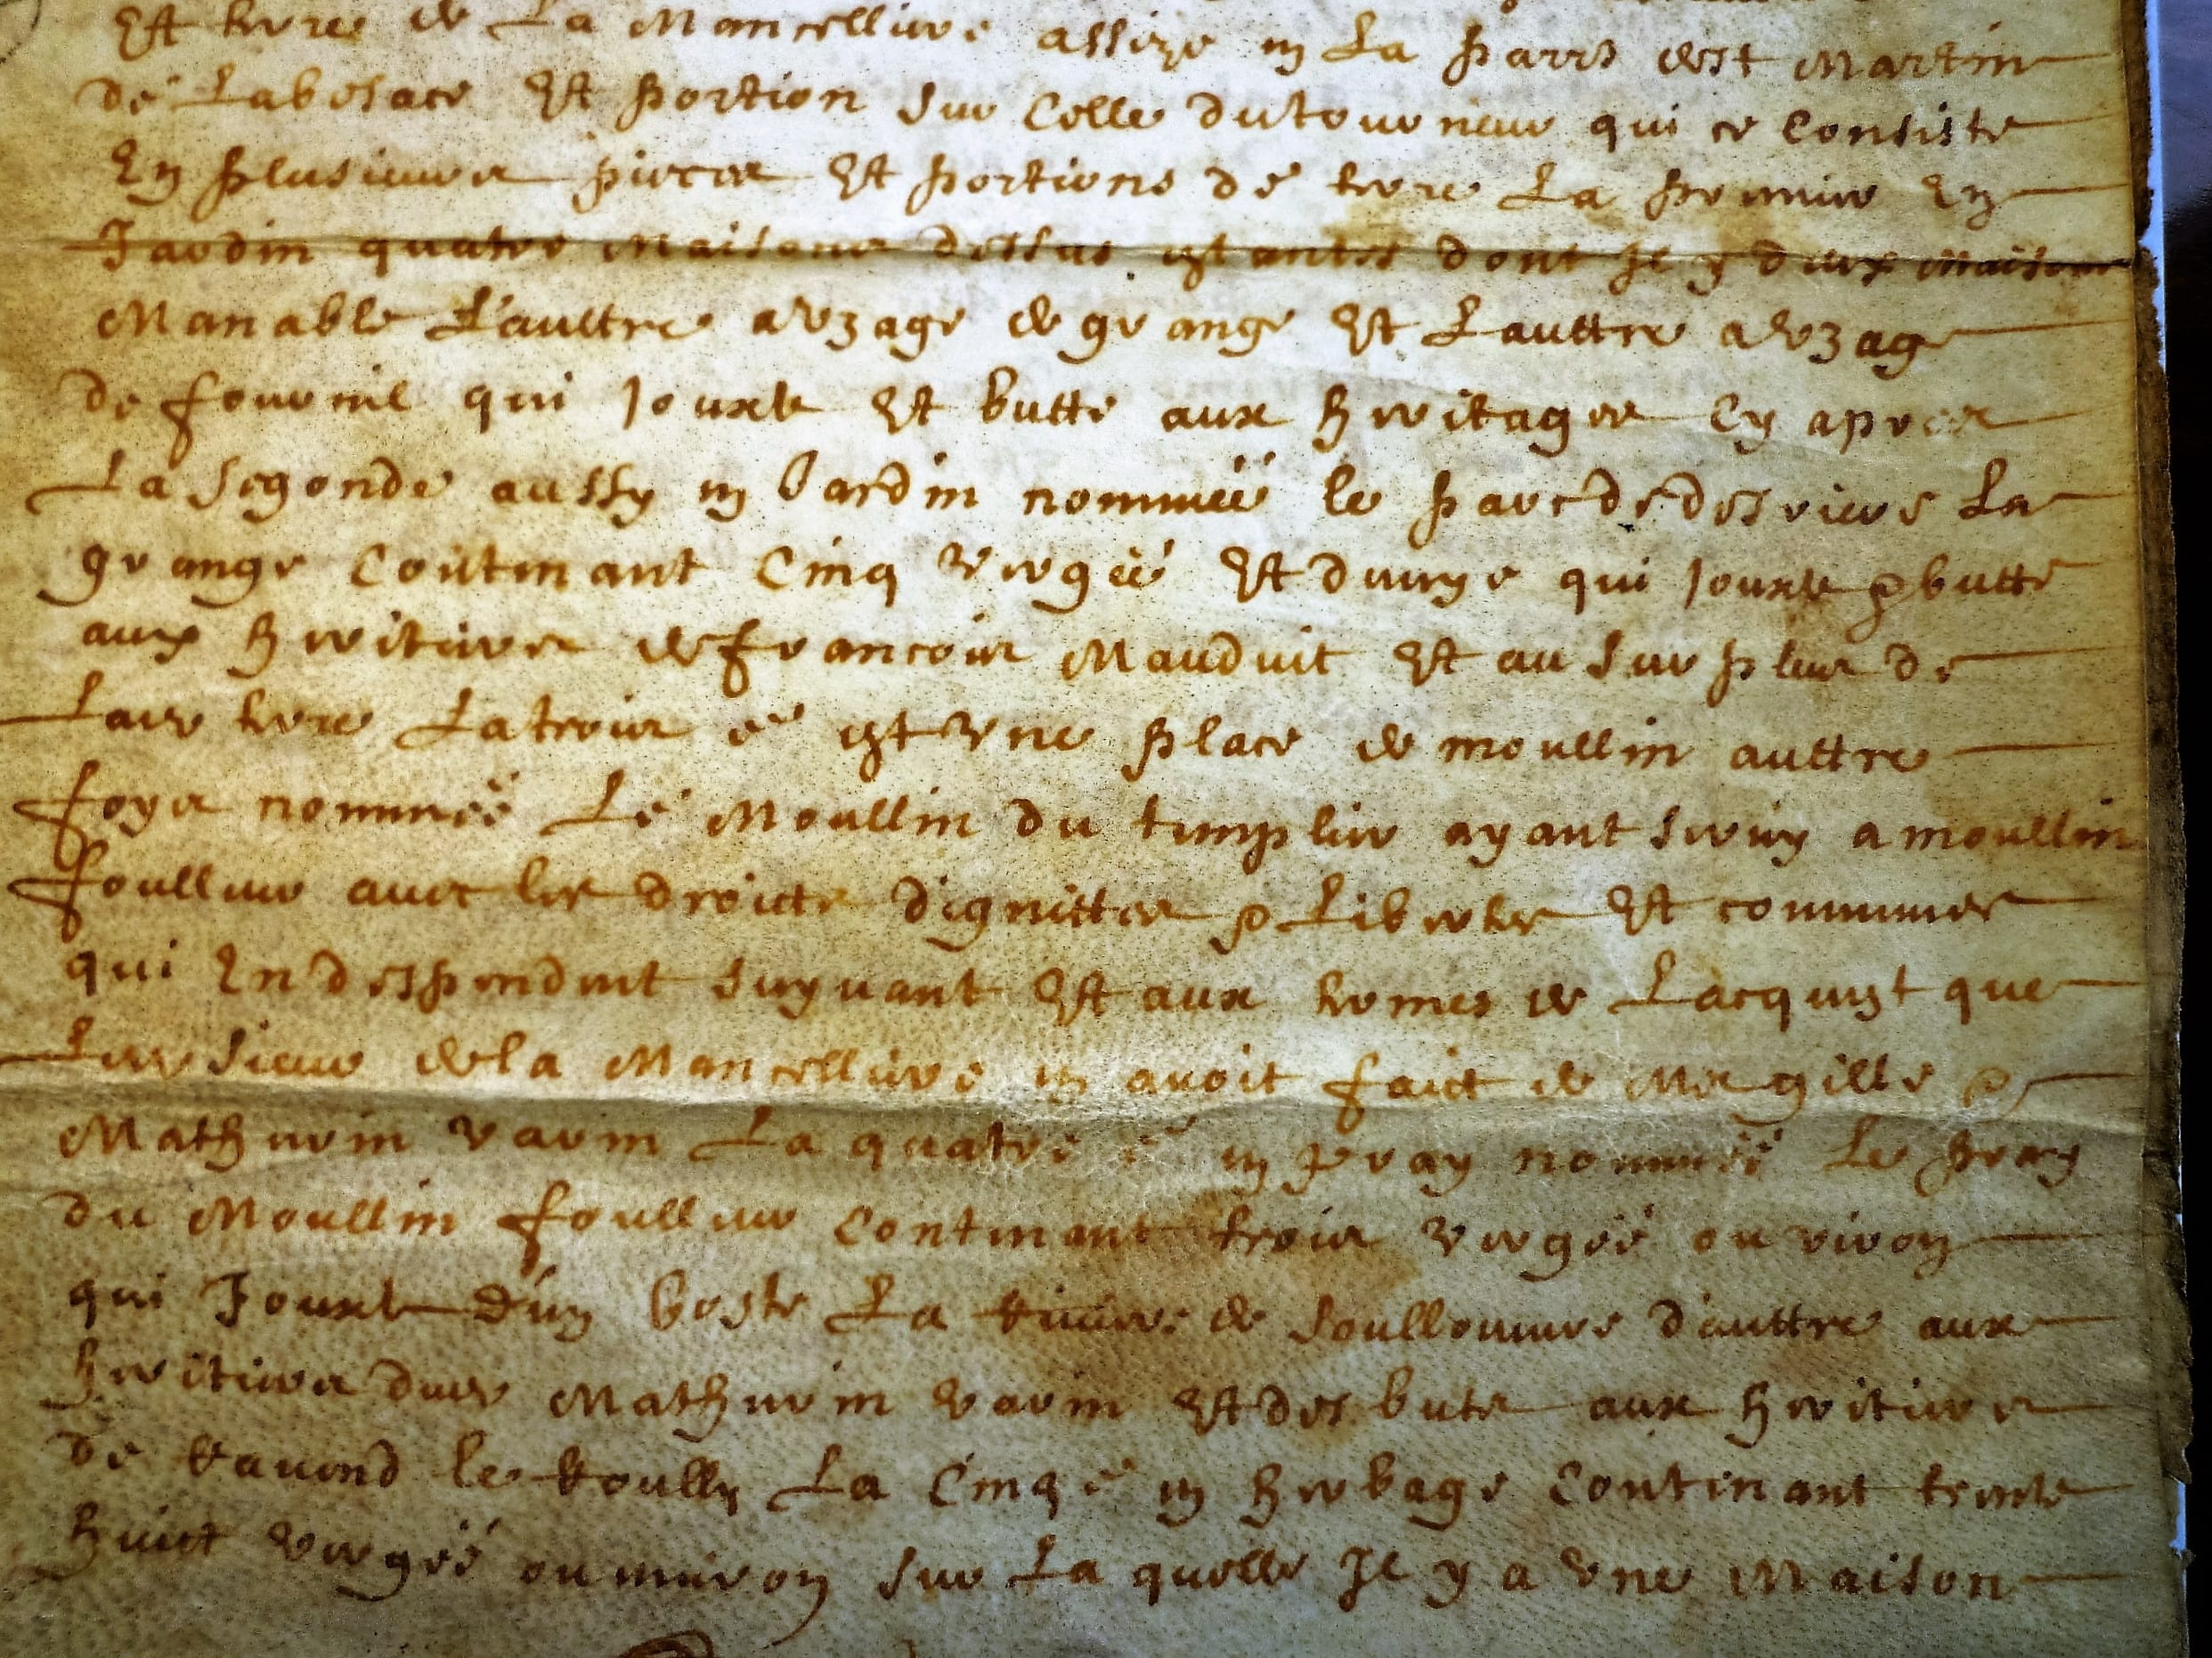 Et terre de La Mancelliere assize en La parrs de st Martin
de Labesace Et portion sur Celle du tourneur qui ce Consiste
En plusieurs pieces Et portions de terre La premiere En
Jardin quatre Maisons dessus estantes dont Il y deux Maisons
Manable L'aultre a vzage de grange Et Lauttre a vzage
de fournil qui Jouxte Et butte aux heritages Cy apres
La segonde aussy en Jardin nommée le parc de desriere La
grange Contenant Cinq vergée Et dmye qui Jouxte & butte
aux heritiers de francois Mauduit Et au surplus de
Lad terre La troise est vne place de moullin auttre
foys nommée Le Moullin du templier ayant servy a moullin
foulleur avec les droicts dignittes & Libertes Et communes
qui En despendent suyvant Et aux termes de Lacquist que
Led sieur de la Mancelliere en avoit faict de Mes gille &
Mathurin varin La quatre e en pray nommée Le pray
du Moullin foulleur Contenant trois vergée ou viron
qui Jouxte d'un coste La Riviere de soulleuvre d'auttre aux
heritiers dud Mathurin varin Et des buts aux heritiers
de Ravend le Roully La Cinqe en herbage Contenant trente
huict vergée ou environ sur La quelle Il y a vne Maison